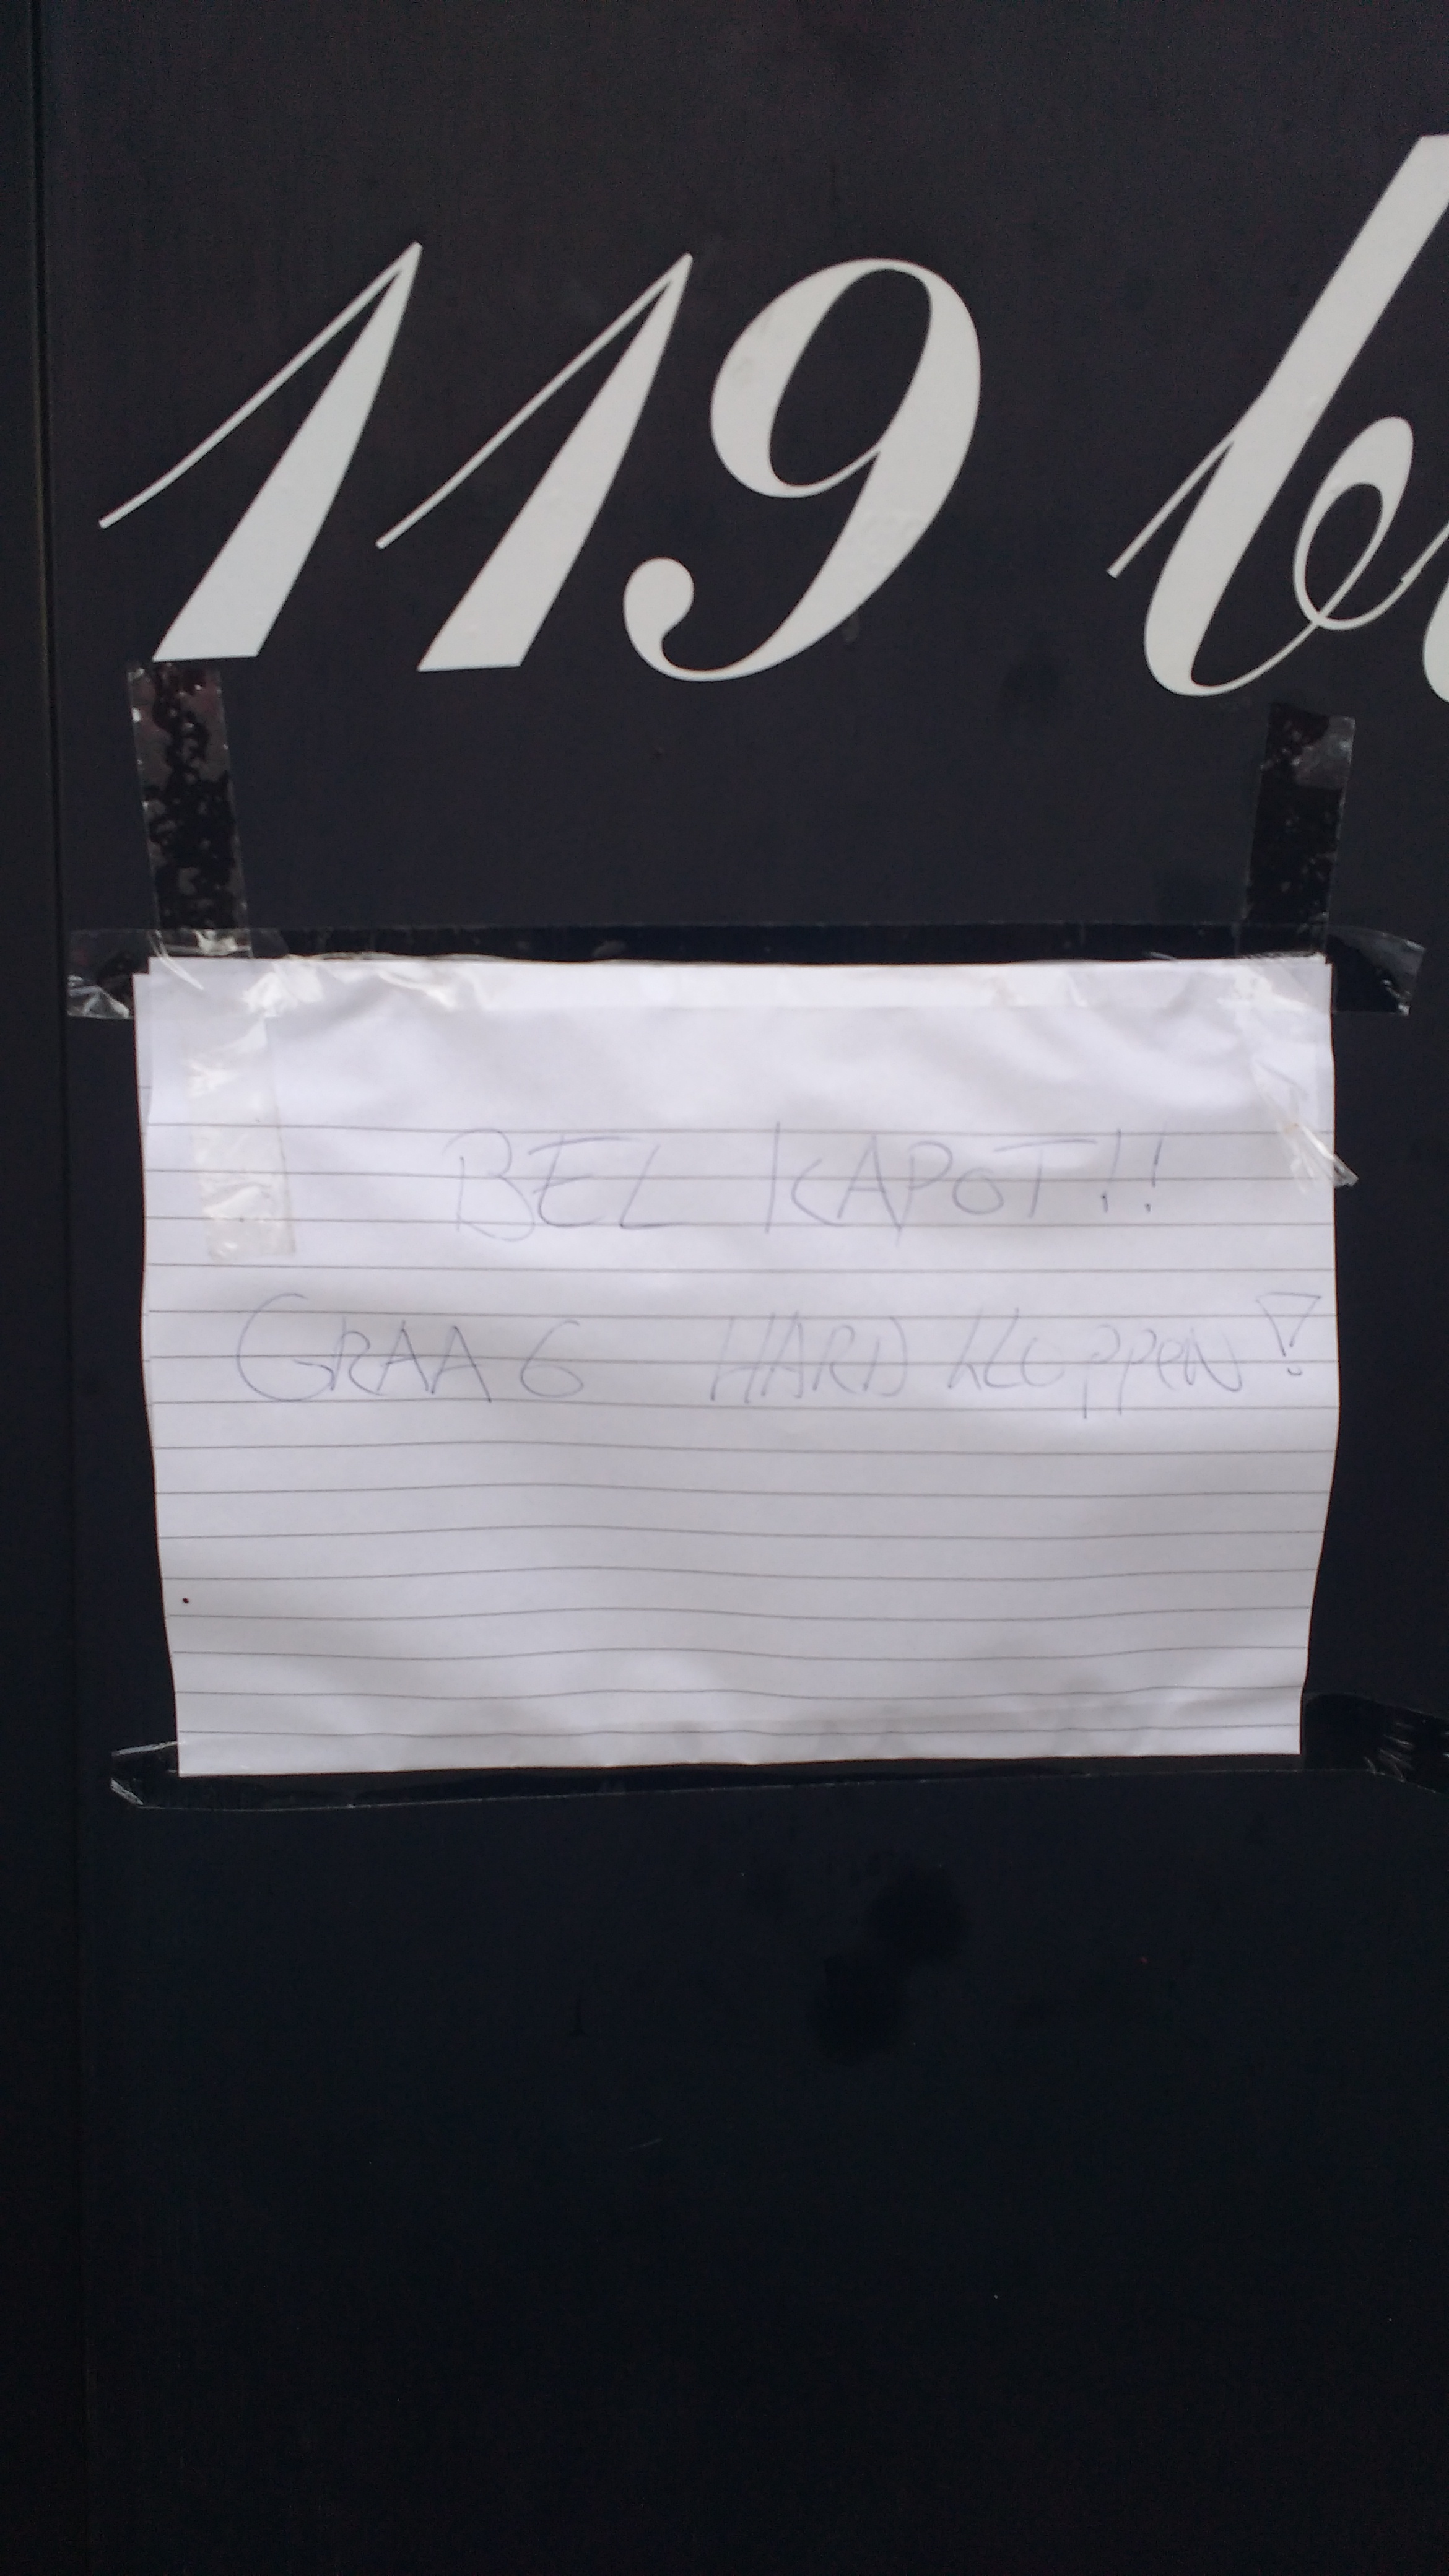 119 b
BEL KAPOT!!
GRAAG HARD KLOPPEN!